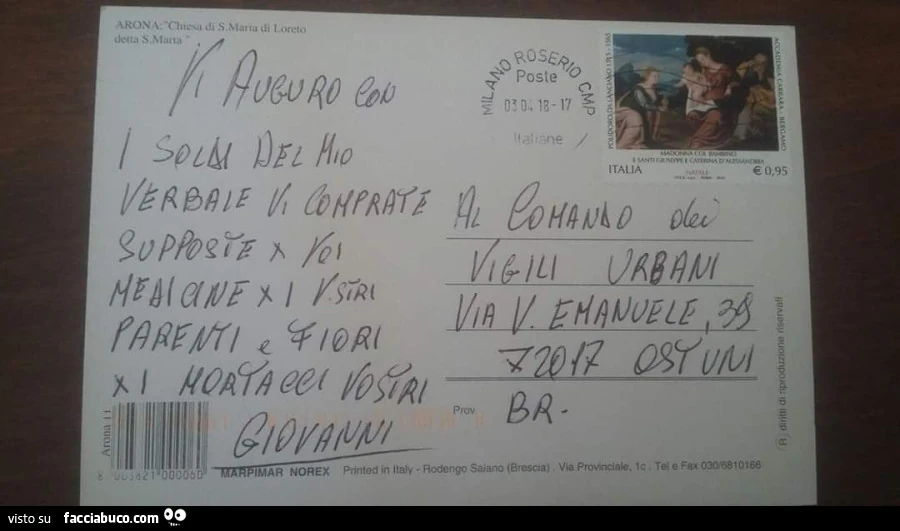 ARONA: "Chiesa di S. Maria di Loreto
detta S. Marta"
VI AUGURO CON
I SOLDI DEL MIO
VERBALE VI COMPRATE
SUPPOSTE X VOI
MEDICINE X I V.STRI
PARENTI e FIORI
X I MORTACCI VOSTRI
GIOVANNI
MILANO ROSERIO CMP
Poste
03 04 18-17
Italiane
ACCADEMIA CARRARA - BERGAMO
MADONNA COL BAMBINO
E SANTI GIUSEPPE E CATERINA D'ALESSANDRIA
ITALIA
NATALE
€ 0,95
AL COMANDO dei
VIGILI URBANI
VIA V. EMANUELE, 39
72017 OSTUNI
Prov.
BR.
(R) diritti di riproduzione riservati
Arona 11
MARPIMAR NOREX Printed in Italy - Rodengo Saiano (Brescia) . Via Provinciale, 1c . Tel e Fax 030/6810166
visto su facciabuco.com